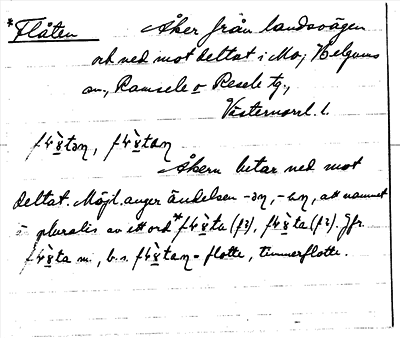 *Flåten Åker från landsvägen
och ned mot deltat i Mo, Helgums
sn, Ramsele o Resele tg.,
Västernorrl. l.
Åkern betar ned mot
deltat. Möjl. anger ändelsen -əɳ, -aɳ, att namnet
är pluralis av ett ord (f?), (f?). Jfr.
m., b.s. = flotte, timmerflotte.